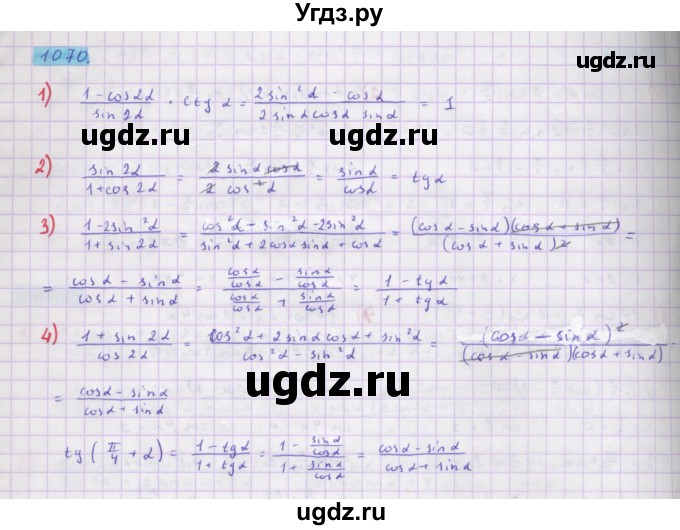 Угдз.ру
1070.
1) (1 - cos2α)/(sin 2α) · ctg α = (2 sin²α - cosα)/(2 sinα cosα sinα) = 1
ugdz.ru ugdz.ru
2) (sin 2α)/(1 + cos 2α) = (2 sinα cosα)/(2 cos²α) = sinα/cosα = tgα
3) (1 - 2sin²α)/(1 + sin 2α) = (cos²α + sin²α - 2sin²α)/(sin²α + 2cosα sinα + cosα) = ((cosα - sinα)(cosα + sinα))/((cosα + sinα)²) =
= (cosα - sinα)/(cosα + sinα) = (cosα/cosα - sinα/cosα)/(cosα/cosα + sinα/cosα) = (1 - tgα)/(1 + tgα)
4) (1 + sin 2α)/(cos 2α) = (cos²α + 2 sinα cosα + sin²α)/(cos²α - sin²α) = (cosα - sinα)²/((cosα - sinα)(cosα + sinα)) =
ugdz.ru ugdz.ru
= (cosα - sinα)/(cosα + sinα)
tg(π/4 + α) = (1 - tgα)/(1 + tgα) = (1 - sinα/cosα)/(1 + sinα/cosα) = (cosα - sinα)/(cosα + sinα)
ugdz.ru